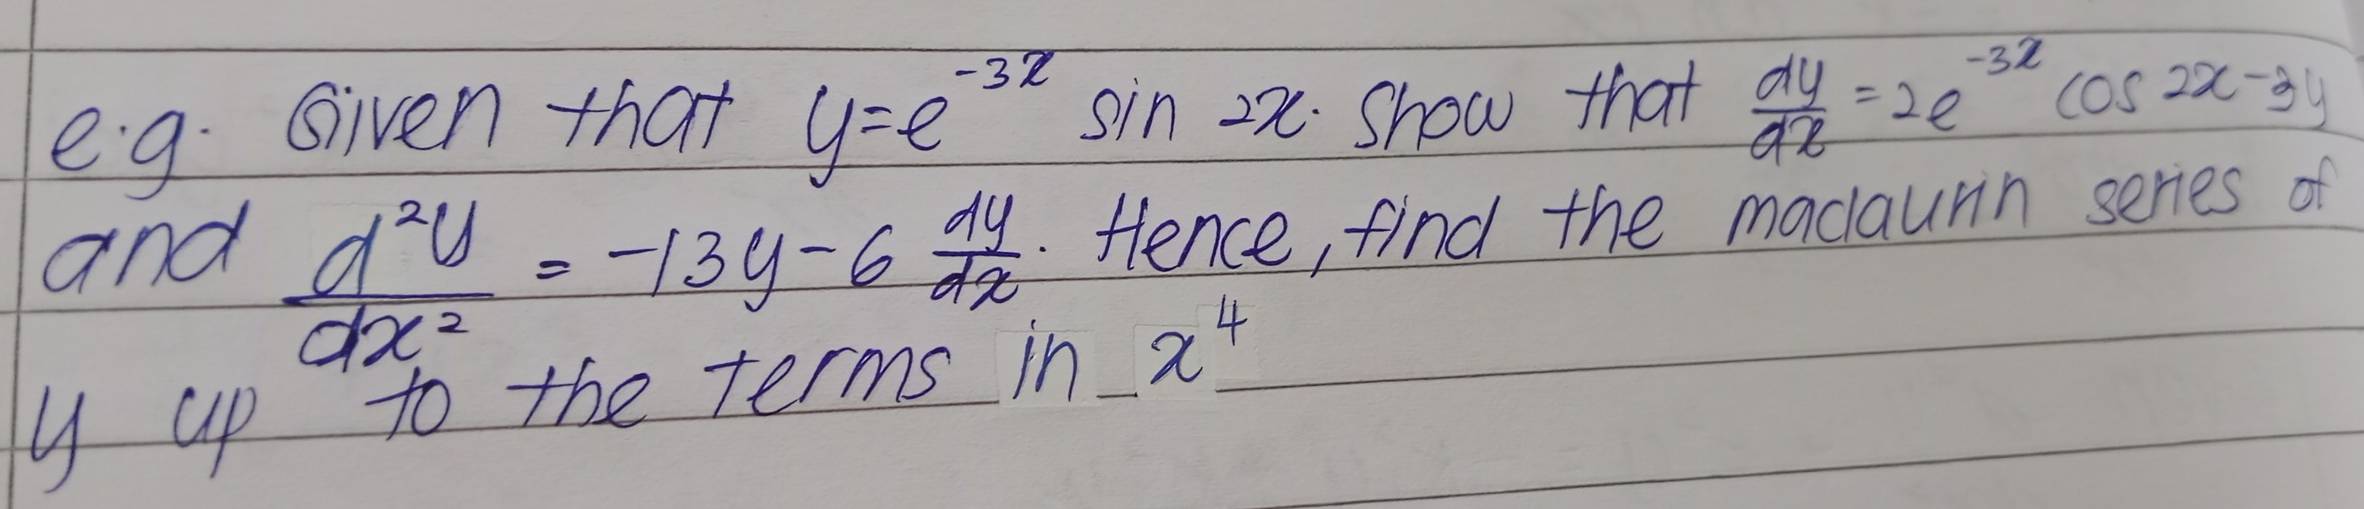 e.g. Given that y=e^{-3x} sin 2x. Show that dy/dx = 2e^{-3x} cos 2x - 3y
and d²y/dx² = -13y - 6 dy/dx. Hence, find the maclaurin series of
y up to the terms in x⁴